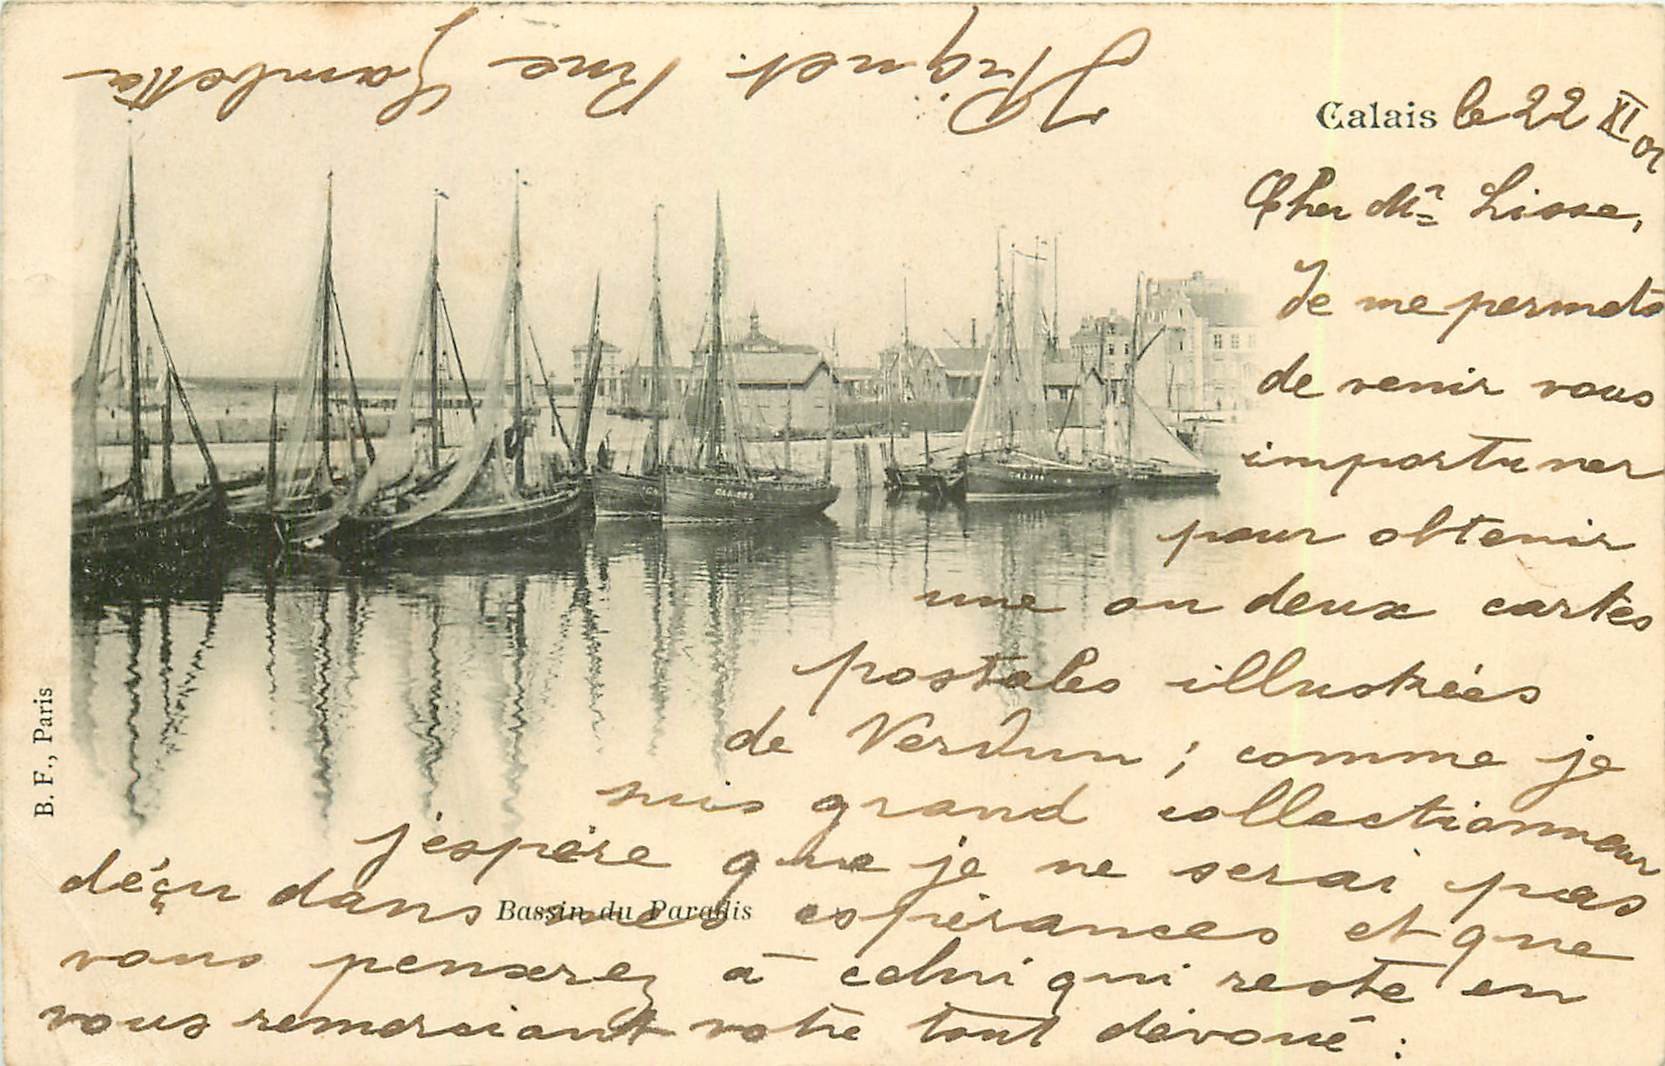 Calais le 22 XI 01
Cher Mr Lisse,
Je me permets
de venir vous
importuner
pour obtenir
une ou deux cartes
postales illustrées
de Verdun ; comme je
suis grand collectionneur
j'espère que je ne serai pas
déçu dans mes espérances et que
vous penserez à celui qui reste en
vous remerciant votre tout dévoué :
Rue Gambetta
Bassin du Paradis
B. F., Paris